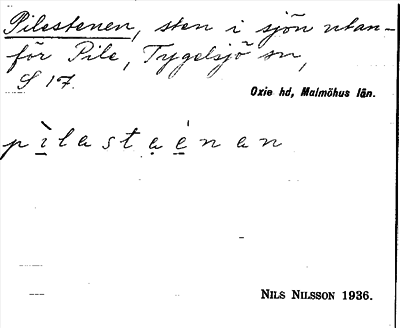 Pilestenen, sten i sjön utan-
för Pile, Tygelsjö sn,
S 17.
Oxie hd, Malmöhus län.
pìlastạénan
NILS NILSSON 1936.